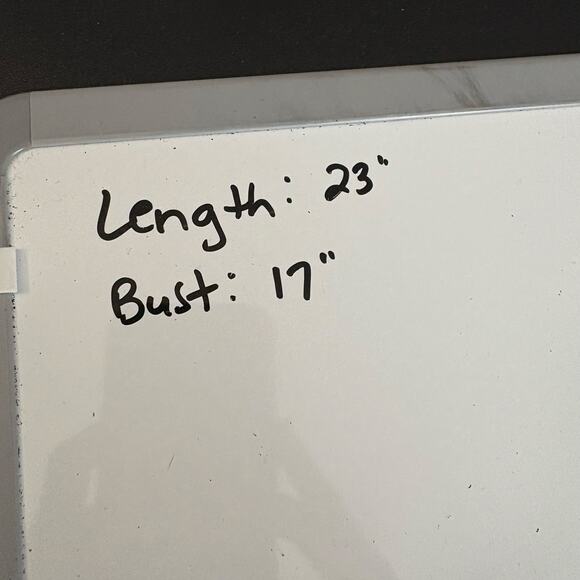 Length: 23"
Bust: 17"